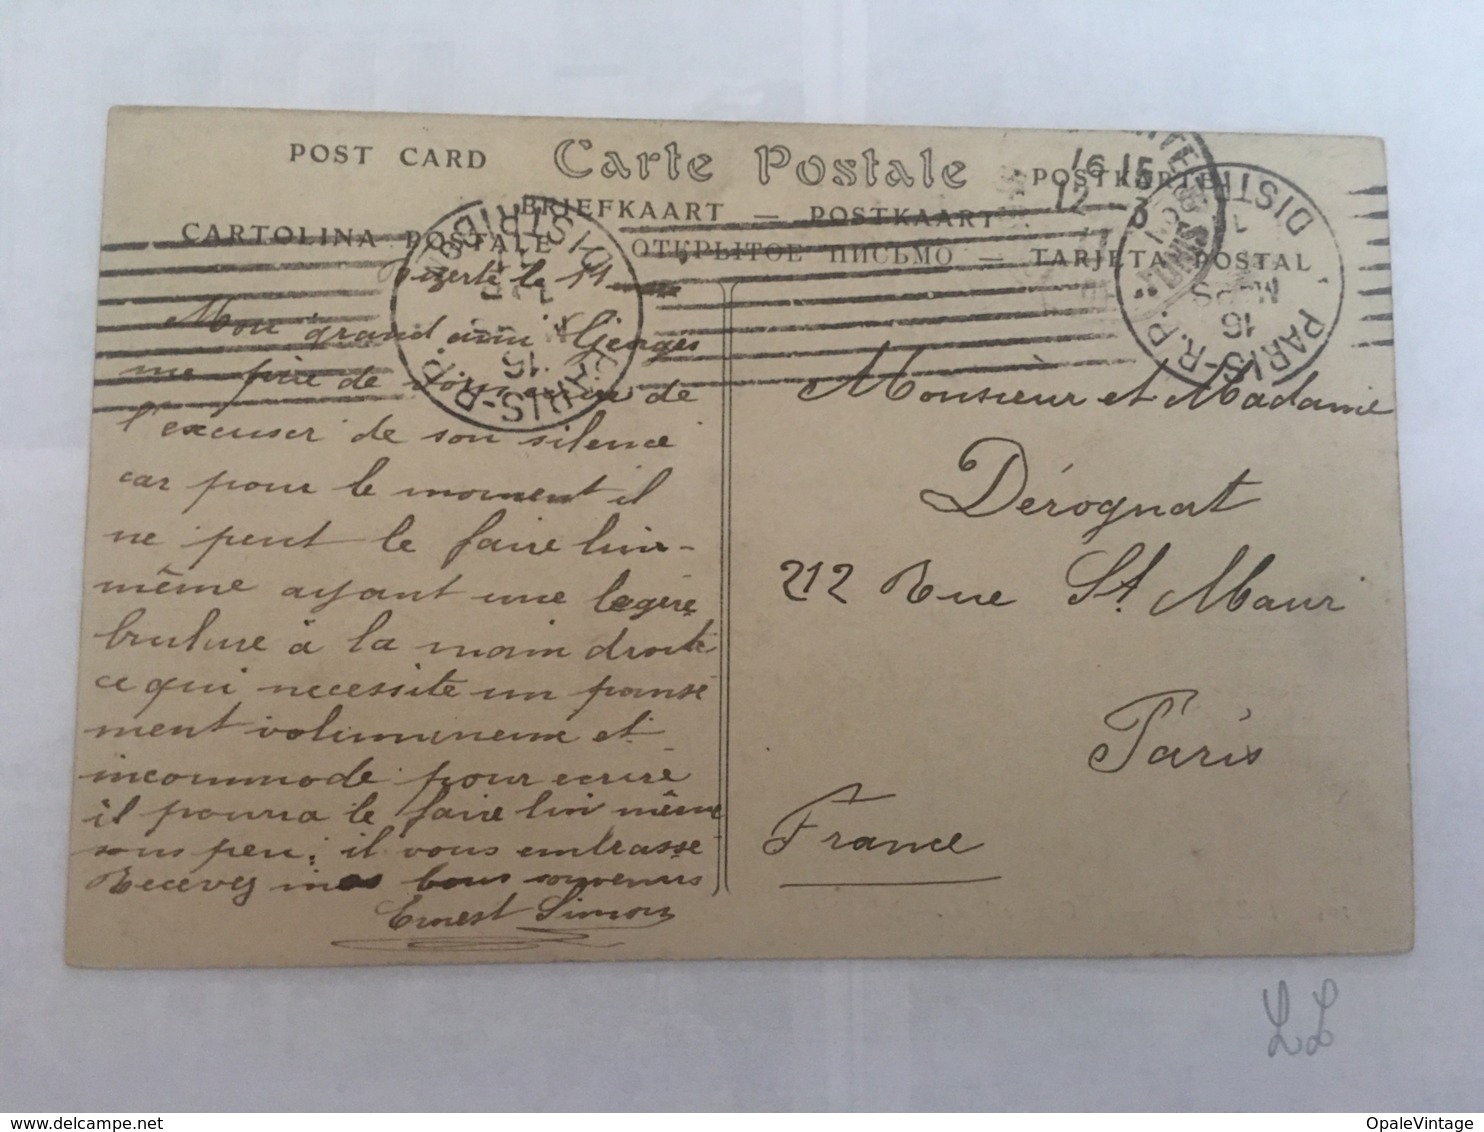 POST CARD Carte Postale POSTKARTE
BRIEFKAART — POSTKAART
CARTOLINA POSTALE ОТКРЫТОЕ ПИСЬМО — TARJETA POSTAL
16 15
12 - 3
BIZERTE
TUNISIE
PARIS-R.P. DISTRIB
16
MARS
PARIS-R.P. DISTRIBon
16
Bizerte le 11
Mon grand ami Georges
me prie de vous de
l'excuser de son silence
car pour le moment il
ne peut le faire lui-
même ayant une legère
brulure à la main droite
ce qui necessite un panse
ment volumineux et
incommode pour ecrire
il pourra le faire lui même
sous peu; il vous embrasse
Recevez mes bons souvenirs
Ernest Simon
Monsieur et Madame
Dérognat
212 Rue St. Maur
Paris
France
LL
www.delcampe.net
OpaleVintage